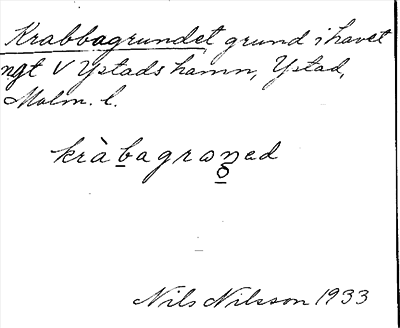 Krabbagrundet grund i havet
ngt V Ystads hamn, Ystad,
Malm. l.
kràbagrωned
Nils Nilsson 1933